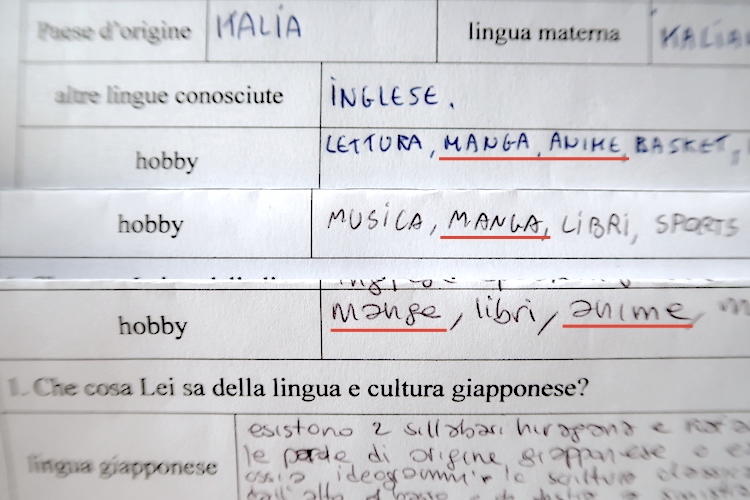 Paese d'origine ITALIA lingua materna
altre lingue conosciute INGLESE.
hobby LETTURA, MANGA, ANIME, BASKET,
hobby MUSICA, MANGA, LIBRI, SPORTS
hobby manga, libri, anime,
1. Che cosa Lei sa della lingua e cultura giapponese?
lingua giapponese
esistono 2 sillabari hiragana e
le parole di origine giapponese o
ossia ideogrammi